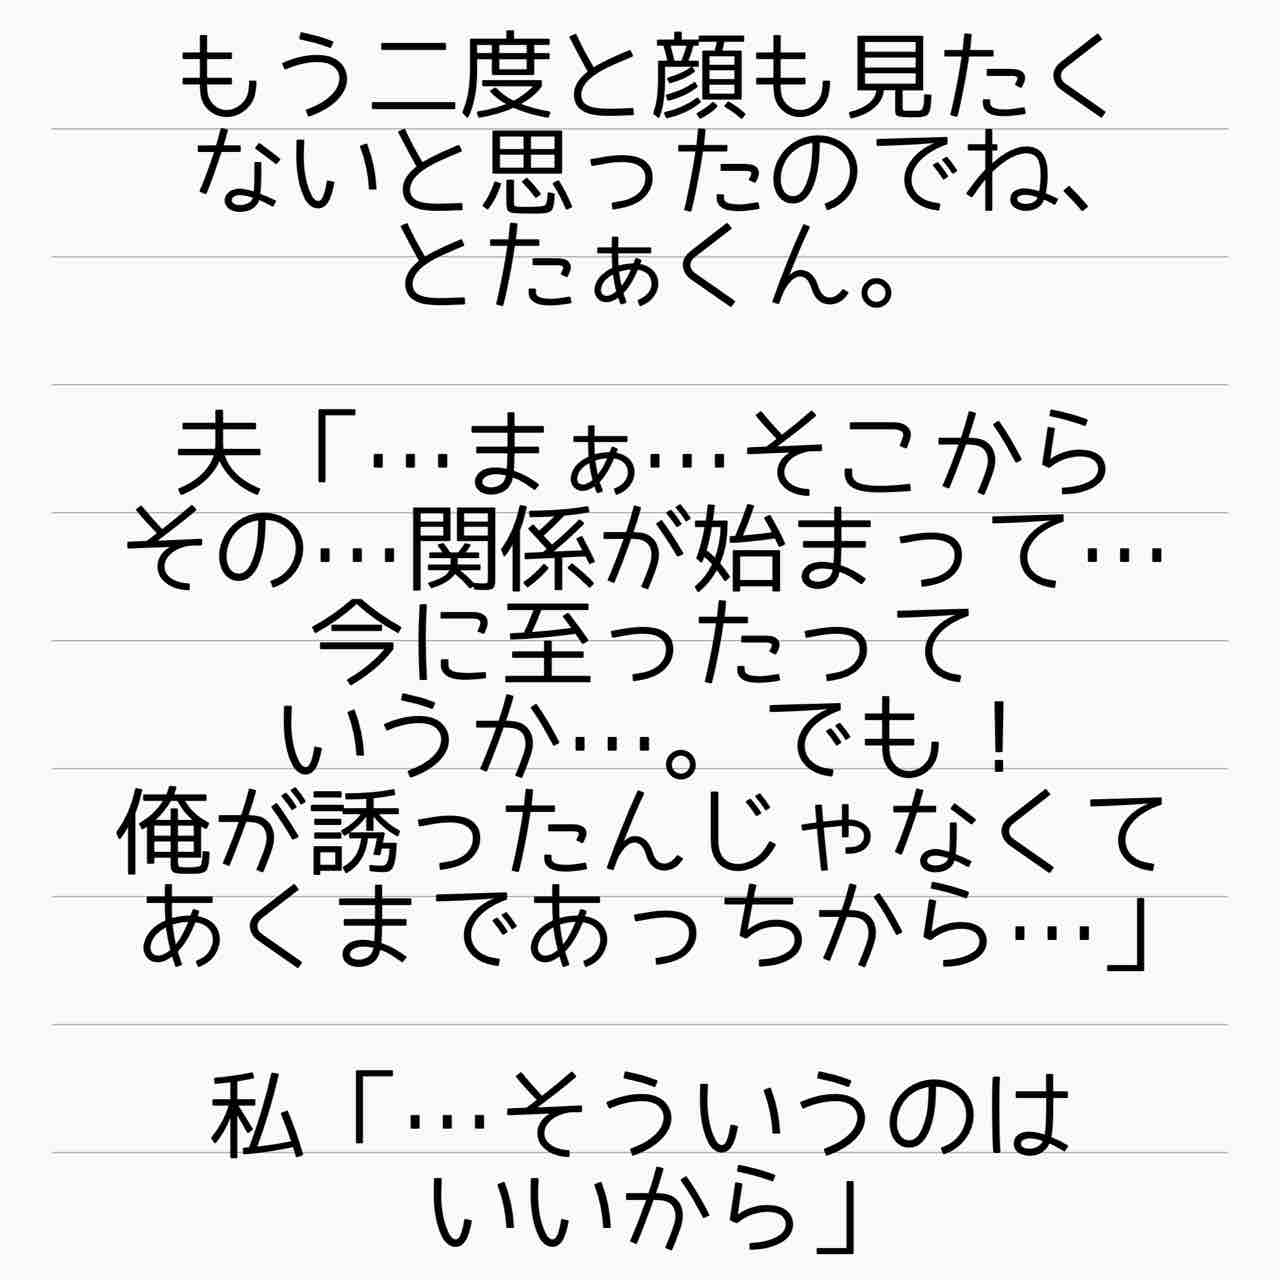 もう二度と顔も見たく
ないと思ったのでね、
とたぁくん。
夫「…まぁ…そこから
その…関係が始まって…
今に至ったって
いうか…。でも！
俺が誘ったんじゃなくて
あくまであっちから…」
私「…そういうのは
いいから」